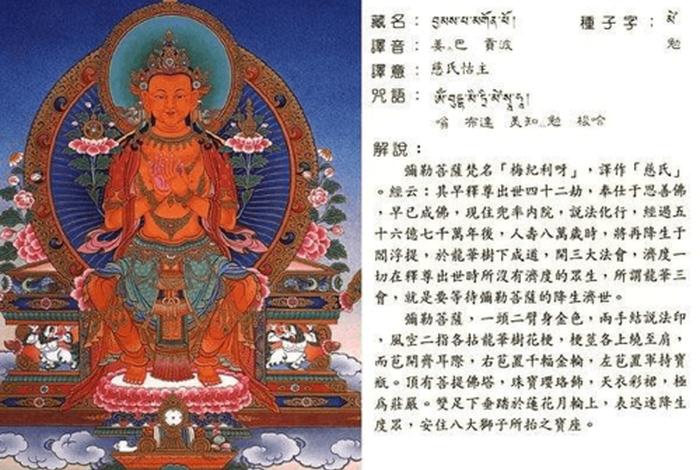 藏名： བྱམས་པ་མགོན་པོ། 種子字：
譯音： 姜巴 貢波 勉
譯意： 慈氏怙主
咒語：
嗡 布達 美知 勉 梭哈
解說：
彌勒菩薩梵名「梅紀利呀」，譯作「慈氏」
。經云：其早釋尊出世四十二劫，奉仕于思善佛
，早已成佛，現住兜率內院，說法化行，經過五
十六億七千萬年後，人壽八萬歲時，將再降生于
閻浮提，於龍華樹下成道，開三大法會，濟度一
切在釋尊出世時所沒有濟度的眾生，所謂龍華三
會，就是要等待彌勒菩薩的降生濟世。
彌勒菩薩，一頭二臂身金色，兩手結說法印
，風空二指各拈龍華樹花梗，梗莖各上繞至肩，
而芭開齊耳際，右芭置千輻金輪，左芭置軍持寶
瓶。頂有菩提佛塔，珠寶瓔珞飾，天衣彩裙，極
為莊嚴。雙足下垂踏於蓮花月輪上，表迅速降生
度眾，安住八大獅子所抬之寶座。